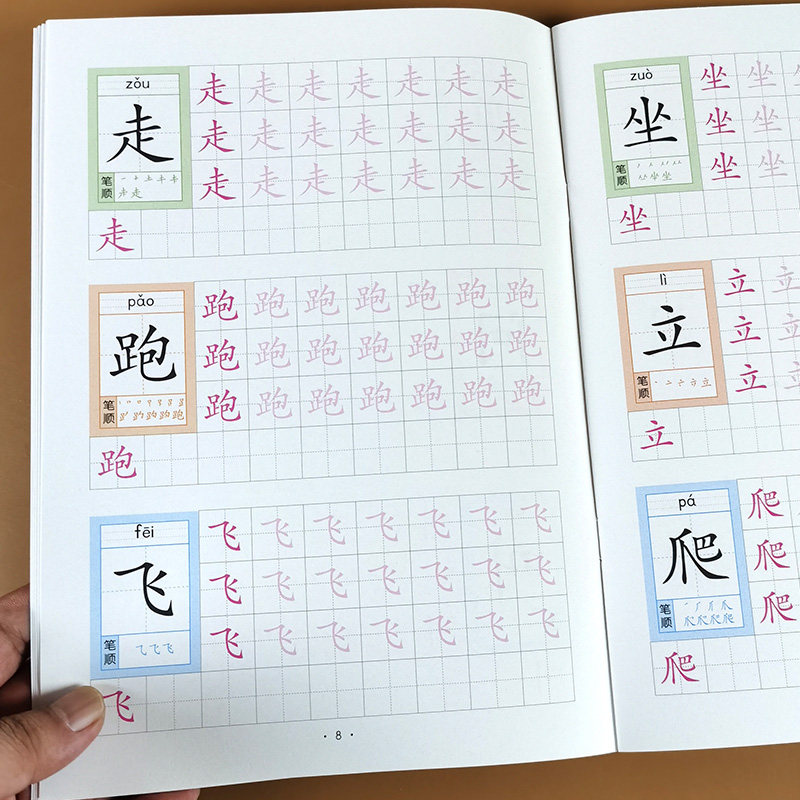 zǒu
走 走 走 走 走 走 走 走
走 走 走 走 走 走 走
笔顺 走 走 走 走 走 走 走
走
pǎo
跑 跑 跑 跑 跑 跑 跑 跑
跑 跑 跑 跑 跑 跑 跑
笔顺 跑 跑 跑 跑 跑 跑 跑
跑
fēi
飞 飞 飞 飞 飞 飞 飞 飞
飞 飞 飞 飞 飞 飞 飞
笔顺 飞 飞 飞 飞 飞 飞 飞
飞
· 8 ·
zuò
坐 坐 坐 坐
坐 坐 坐
笔顺 坐 坐
坐
lì
立 立 立
立 立
笔顺 立 立
立
pá
爬 爬
爬
笔顺 爬
爬